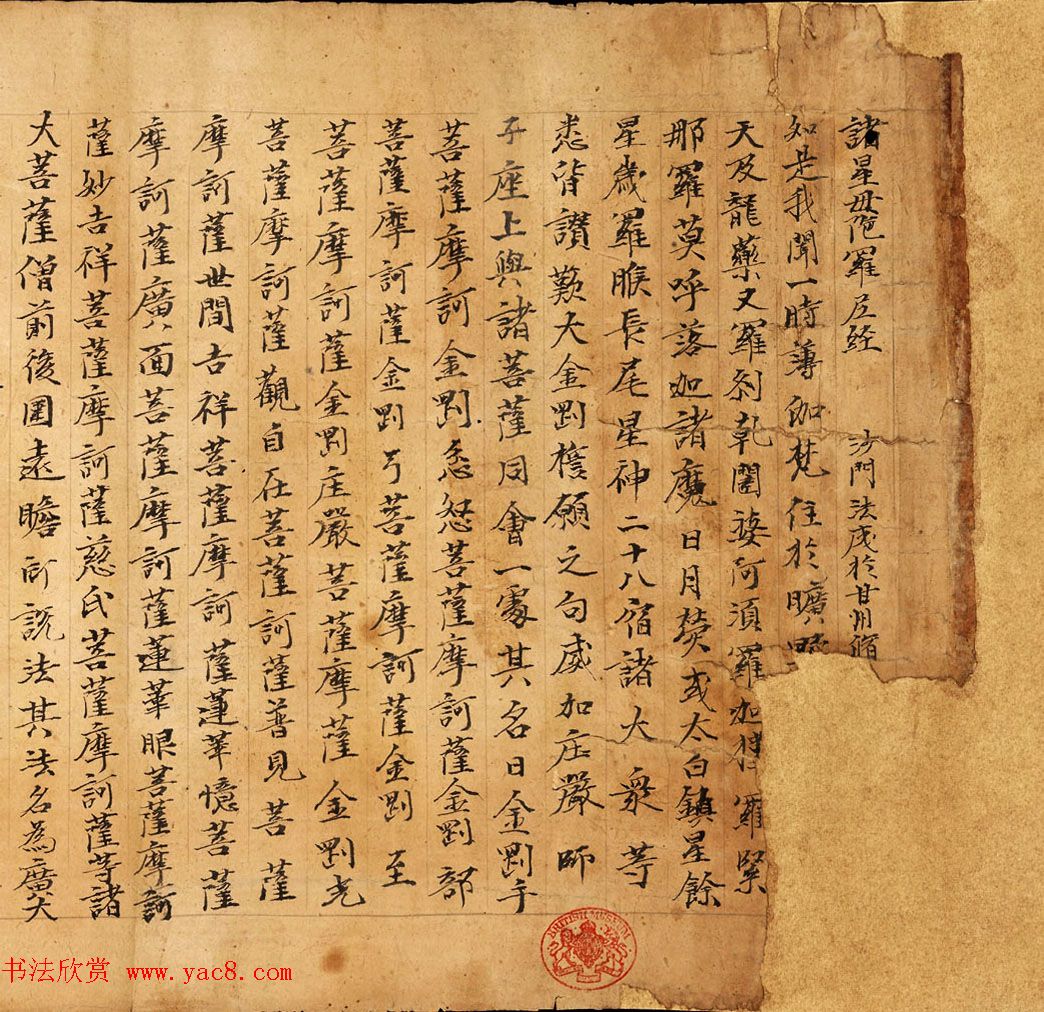 諸星母陀羅尼経 沙門法成於甘州脩
如是我聞一時薄伽梵住於曠野
天及龍藥叉羅刹乾闥婆阿須羅迦樓羅緊
那羅莫呼落迦諸魔日月熒或太白鎮星餘
星歲羅睺長尾星神二十八宿諸大衆等
悉皆讃歎大金剛㨿願之句威加庄嚴師
子座上與諸菩薩同會一處其名曰金剛手
菩薩摩訶金剛忿怒菩薩摩訶薩金剛部
菩薩摩訶薩金剛弓菩薩摩訶薩金剛至
菩薩摩訶薩金剛庄嚴菩薩摩薩金剛光
菩薩摩訶薩觀自在菩薩訶薩普見菩薩
摩訶薩世間吉祥菩薩摩訶薩蓮華憶菩薩
摩訶薩廣面菩薩摩訶薩蓮華眼菩薩摩訶
薩妙吉祥菩薩摩訶薩慈氏菩薩摩訶薩等諸
大菩薩僧前後圍遶瞻所説法其法名為廣大
BRITISH MUSEUM
书法欣赏 www.yac8.com